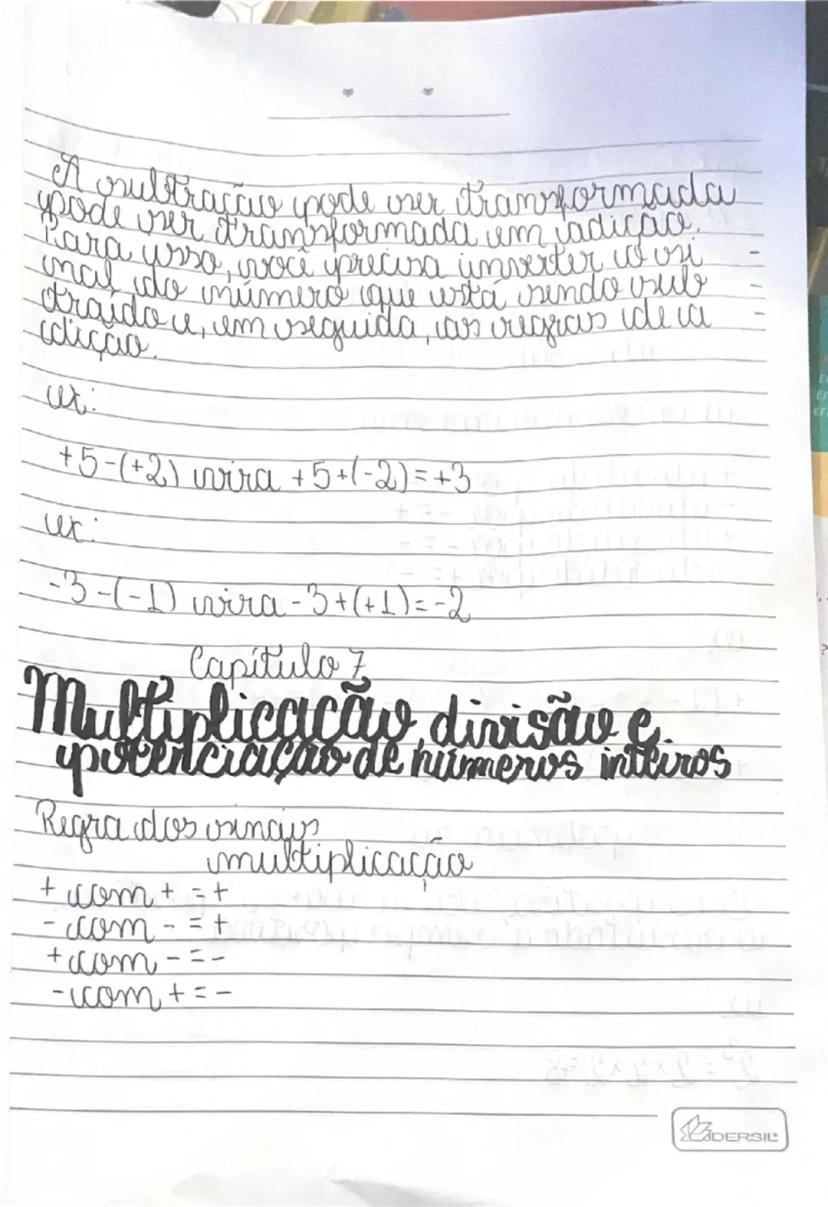 A subtração pode ser transformada
pode ser transformada em adição.
Para isso, você precisa inverter o si -
nal do número que está sendo sub -
traído e, em seguida, as regras de a -
dição.
ex:
+5-(+2) vira +5+(-2)=+3
ex:
-3-(-1) vira -3+(+1)=-2
Capítulo 7
Multiplicação, divisão e
potenciação de números inteiros
Regra dos sinais
multiplicação
+ com + = +
- com - = +
+ com - = -
- com + = -
DERSIL